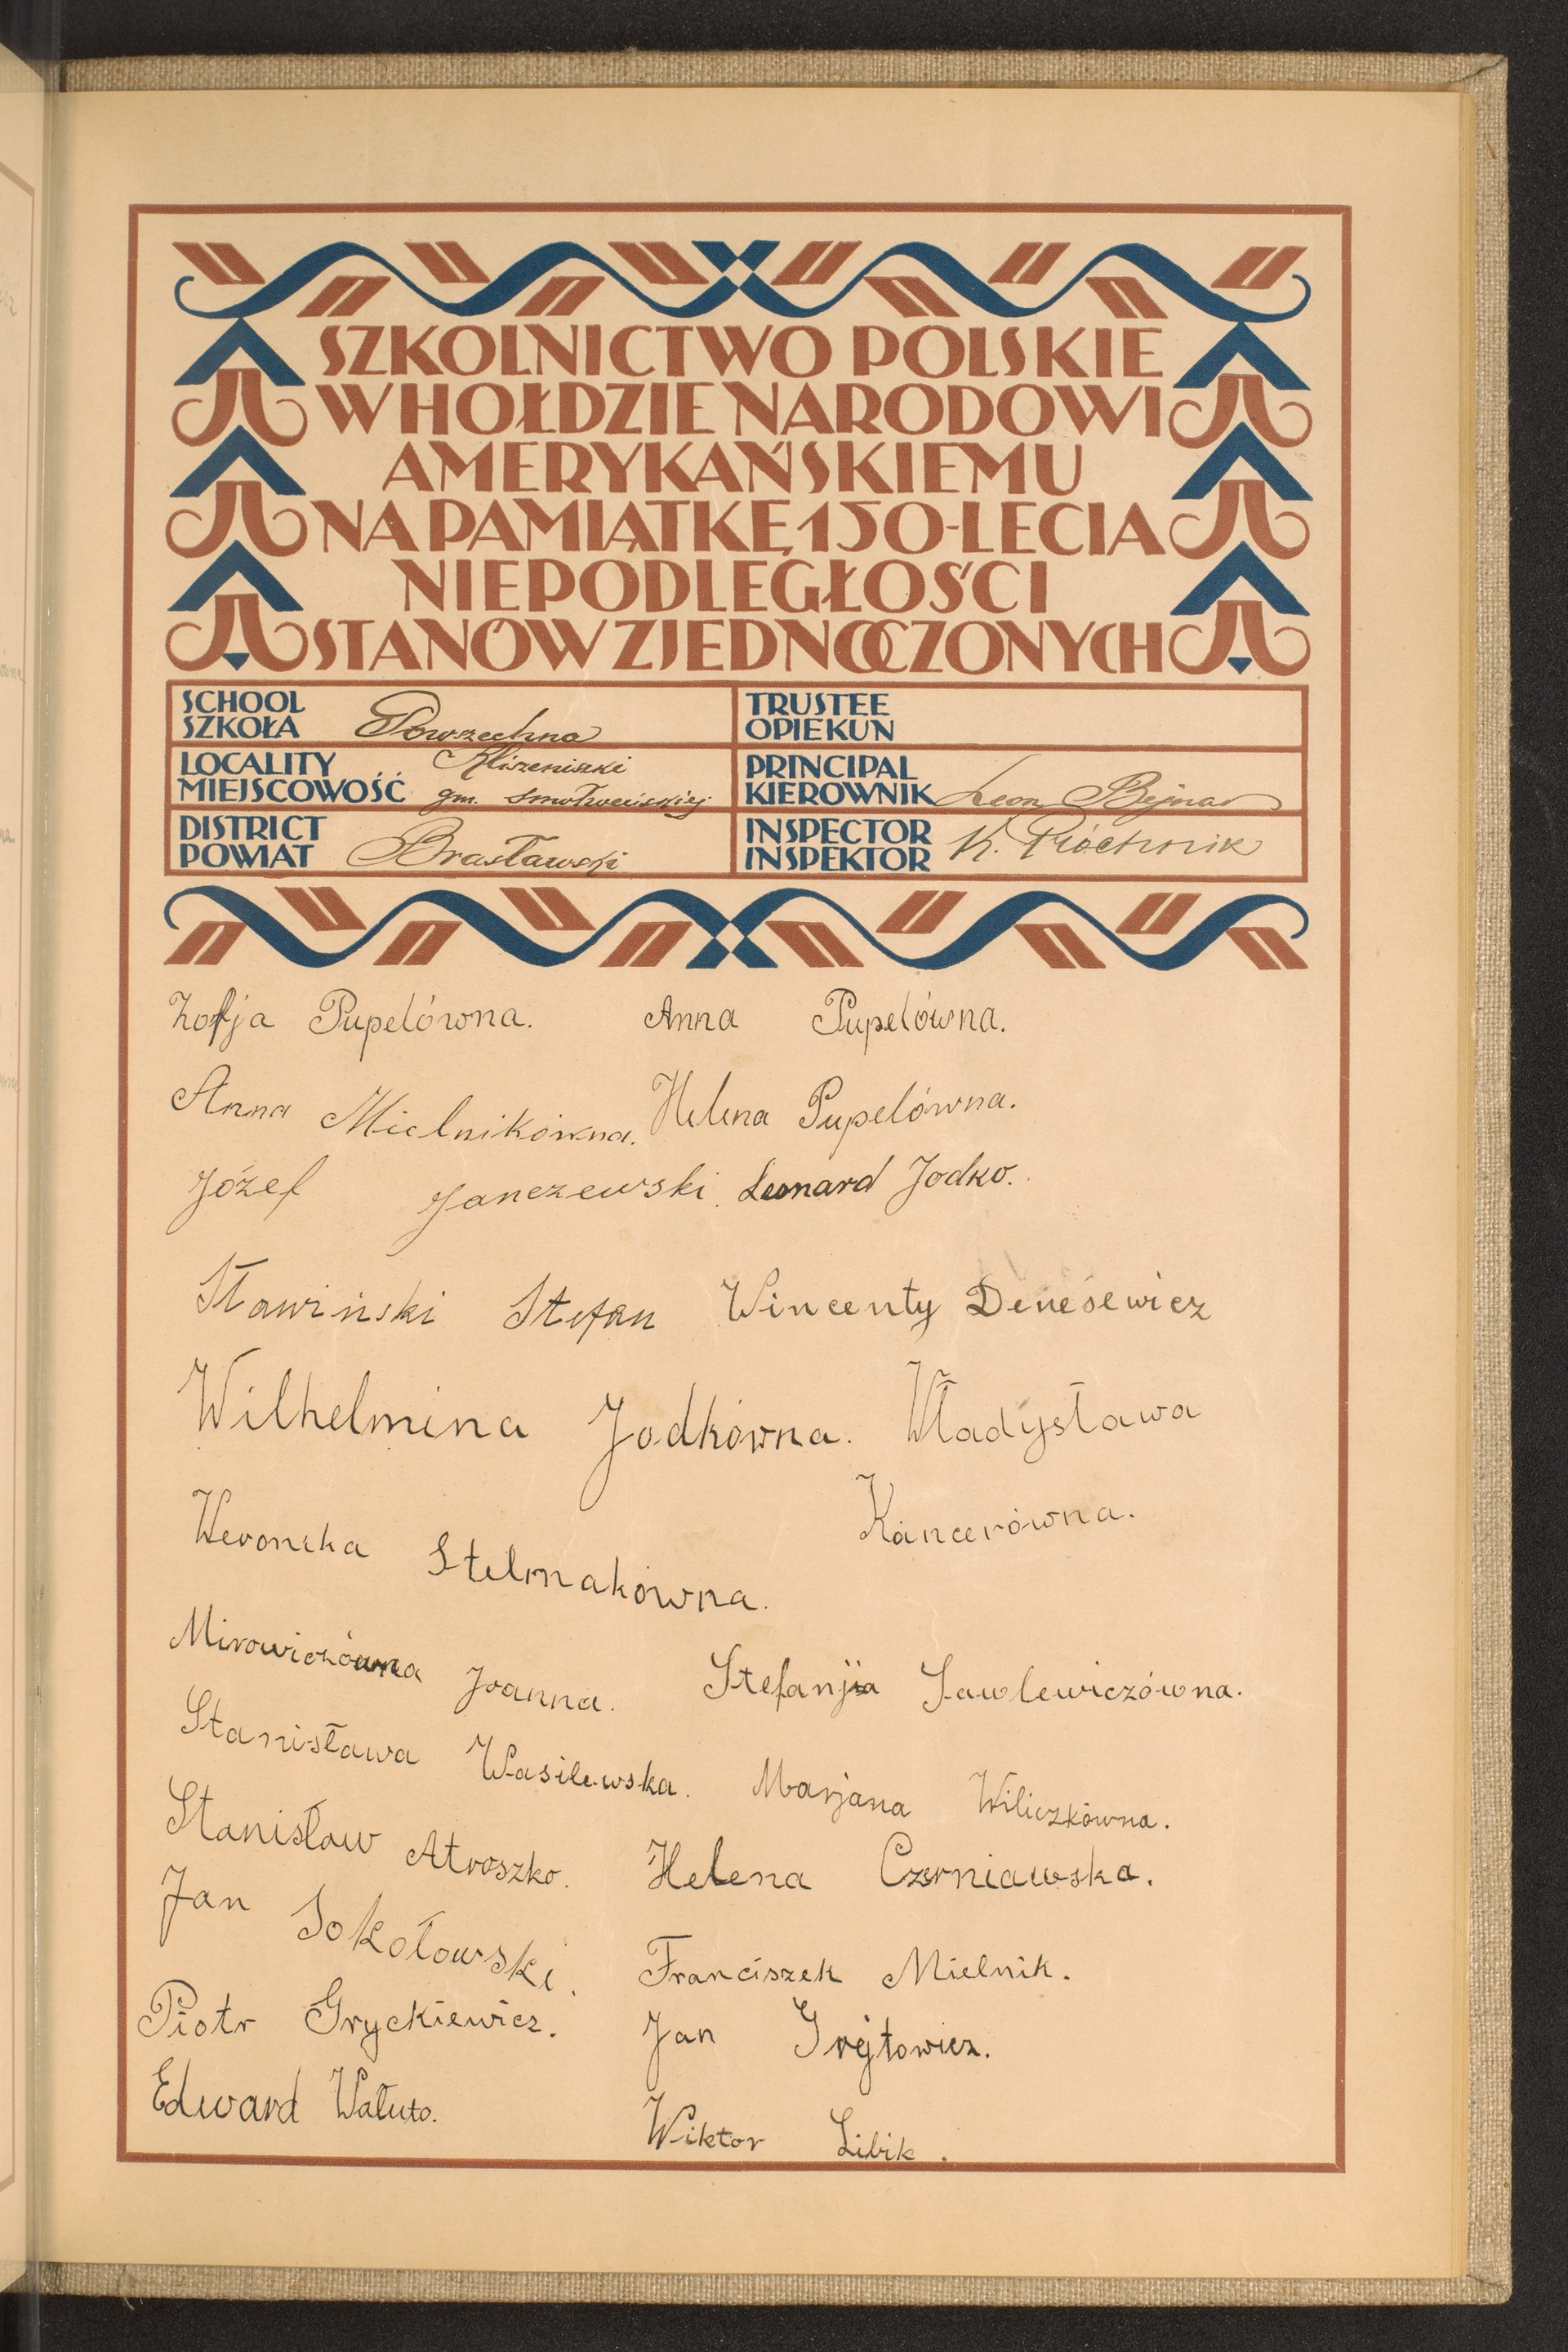 SZKOLNICTWO POLSKIE
W HOŁDZIE NARODOWI
AMERYKAŃSKIEMU
NA PAMIĄTKĘ 150-LECIA
NIEPODLEGŁOŚCI
STANÓW ZJEDNOCZONYCH
SCHOOL
SZKOŁA Powszechna
TRUSTEE
OPIEKUN
LOCALITY
MIEJSCOWOŚĆ Kliszeniszki
gm. smołweńskiej
PRINCIPAL
KIEROWNIK Leon Bejnar
DISTRICT
POWIAT Brasławski
INSPECTOR
INSPEKTOR K. Próchnik
Zofja Pupelówna. Anna Pupelówna.
Anna Mielnikówna. Helena Pupelówna.
Józef Janczewski. Leonard Jodko.
Sławiński Stefan Wincenty Deneśewicz
Wilhelmina Jodkówna. Władysława
Kancerówna.
Weronika Stelmakówna.
Mirowiczówna Joanna. Stefanja Sawlewiczówna.
Stanisława Wasilewska. Marjana Wiliczkówna.
Stanisław Atroszko. Helena Czerniawska.
Jan Sokołowski. Franciszek Mielnik.
Piotr Gryckiewicz. Jan Grejtowicz.
Edward Wałuto. Wiktor Libik.